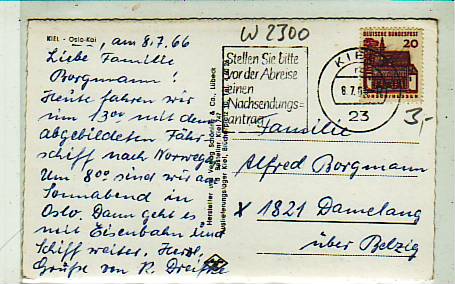 W 2300
KIEL - Oslo-Kai, am 8.7.66
Liebe Familie
Borgmann!
Heute fahren wir
um 13⁰⁰ mit dem
abgebildeten Fähr-
schiff nach Norwegen.
Um 8⁰⁰ sind wir am
Sonnabend in
Oslo. Dann geht es
mit Eisenbahn und
Schiff weiter. Herzl.
Grüße von R.
Stellen Sie bitte
vor der Abreise
einen
Nachsendungs=
antrag
KIEL
8.7.
23
DEUTSCHE BUNDESPOST
20
3,-
Familie
Alfred Borgmann
x 1821 Damelang
über Belzig